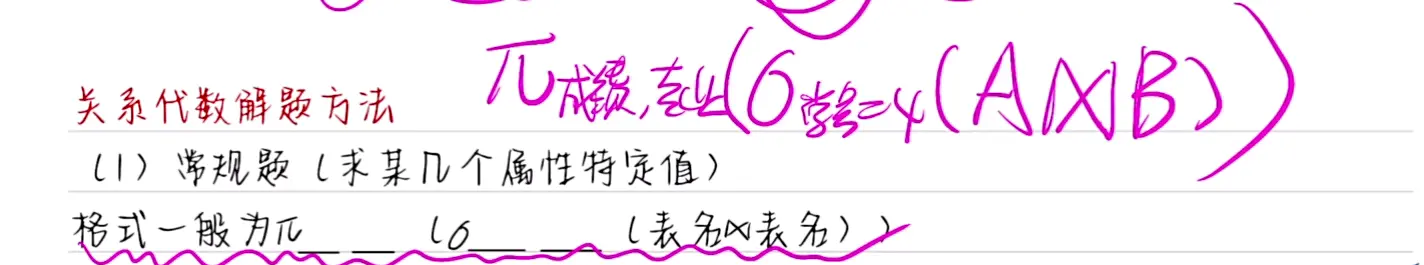 π成绩,专业(σ学号=4(A⋈B))
关系代数解题方法
(1) 常规题(求某几个属性特定值)
格式一般为π__ __ (σ__ __ (表名⋈表名))